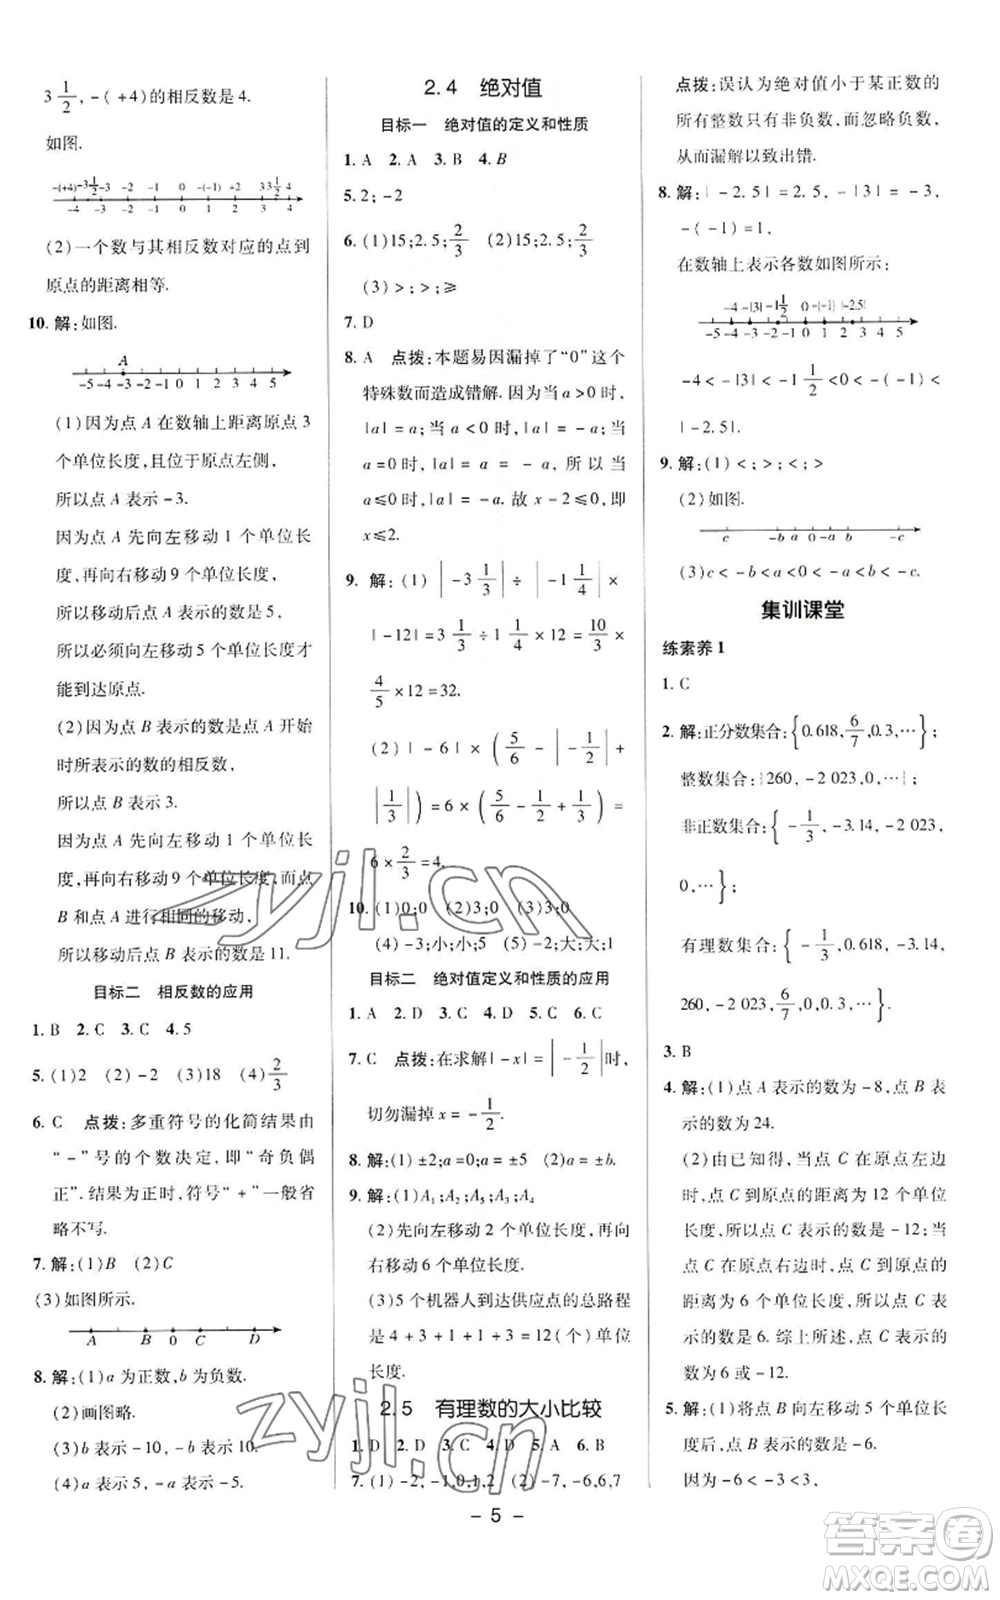 3 1/2, -(+4)的相反数是4.
如图.
-(+4) -3 1/2 -3 -2 -1 0 -(-1) +2 3 3 1/2 4
-4 -3 -2 -1 0 1 2 3 4
(2)一个数与其相反数对应的点到
原点的距离相等.
10. 解:如图.
A
-5 -4 -3 -2 -1 0 1 2 3 4 5
(1)因为点 A 在数轴上距离原点 3
个单位长度,且位于原点左侧,
所以点 A 表示 -3.
因为点 A 先向左移动 1 个单位长
度,再向右移动 9 个单位长度,
所以移动后点 A 表示的数是 5,
所以必须向左移动 5 个单位长度才
能到达原点.
(2)因为点 B 表示的数是点 A 开始
时所表示的数的相反数,
所以点 B 表示 3.
因为点 A 先向左移动 1 个单位长
度,再向右移动 9 个单位长度,而点
B 和点 A 进行相同的移动,
所以移动后点 B 表示的数是 11.
目标二 相反数的应用
1. B 2. C 3. C 4. 5
5. (1)2 (2)-2 (3)18 (4)2/3
6. C 点拨:多重符号的化简结果由
“-”号的个数决定,即“奇负偶
正”.结果为正时,符号“+”一般省
略不写.
7. 解:(1)B (2)C
(3)如图所示.
A B 0 C D
8. 解:(1)a 为正数,b 为负数.
(2)画图略.
(3)b 表示 -10, -b 表示 10.
(4)a 表示 5, -a 表示 -5.
2.4 绝对值
目标一 绝对值的定义和性质
1. A 2. A 3. B 4. B
5. 2; -2
6. (1)15;2.5;2/3 (2)15;2.5;2/3
(3)>;>;≥
7. D
8. A 点拨:本题易因漏掉了“0”这个
特殊数而造成错解.因为当 a>0 时,
|a|=a;当 a<0 时,|a|=-a;当
a=0 时,|a|=a=-a,所以当
a≤0 时,|a|=-a.故 x-2=0,即
x≤2.
9. 解:(1)|-3 1/3|÷|-1 1/4|×
|-12|=3 1/3÷1 1/4×12=10/3×
4/5×12=32.
(2)|-6|×(5/6-|-1/2|+
|1/3|)=6×(5/6-1/2+1/3)=
6×2/3=4.
10. (1)0;0 (2)3;0 (3)3;0
(4)-3;小;小;5 (5)-2;大;大;1
目标二 绝对值定义和性质的应用
1. A 2. D 3. D 4. C 5. C 6. C
7. C 点拨:在求解|-x|=|-1/2|时,
切勿漏掉 x=-1/2.
8. 解:(1)±2;a=0;a=±5 (2)2.
9. 解:(1)A₁;A₂;A₃;A₄
(2)先向左移动 2 个单位长度,再向
右移动 6 个单位长度.
(3)5 个机器人到达供应点的总路程
是4+3+1+1+3=12(个)单位
长度.
2.5 有理数的大小比较
1. D 2. D 3. C 4. D 5. A 6. B
7. (1)-2,-1,0,1,2 (2)-7,-6,6,7
点拨:误认为绝对值小于某正数的
所有整数只有非负数,而忽略负数,
从而漏解以致出错.
8. 解:|-2.5|=2.5, -|3|=-3,
-(-1)=1,
在数轴上表示各数如图所示:
-4 -|3| -1 1/2 0 -(-1) |-2.5|
-5 -4 -3 -2 -1 0 1 2 3 4 5
-4<-|3|<-1 1/2<0<-(-1)<
|-2.5|.
9. 解:(1)<;>;<;>
(2)如图.
c -b a 0 -a b -c
(3)c<-b<a<0<-a<b<-c.
集训课堂
练素养 1
1. C
2. 解:正分数集合:{0.618,6/7,0.3,⋯};
整数集合:{260,-2 023,0,⋯};
非正数集合:{-1/3,-3.14,-2 023,
0,⋯};
有理数集合:{-1/3,0.618,-3.14,
260,-2 023,6/7,0,0.3,⋯}.
3. B
4. 解:(1)点 A 表示的数为 -8,点 B 表
示的数为 24.
(2)由已知得,当点 C 在原点左边
时,点 C 到原点的距离为 12 个单位
长度,所以点 C 表示的数是 -12;当
点 C 在原点右边时,点 C 到原点的
距离为 6 个单位长度,所以点 C 表
示的数是 6. 综上所述,点 C 表示的
数为 6 或 -12.
5. 解:(1)将点 B 向左移动 5 个单位长
度后,点 B 表示的数是 -6.
因为 -6<-3<3,
- 5 -
zyjl.cn
zyjl.cn
答案圈
MXQE.COM